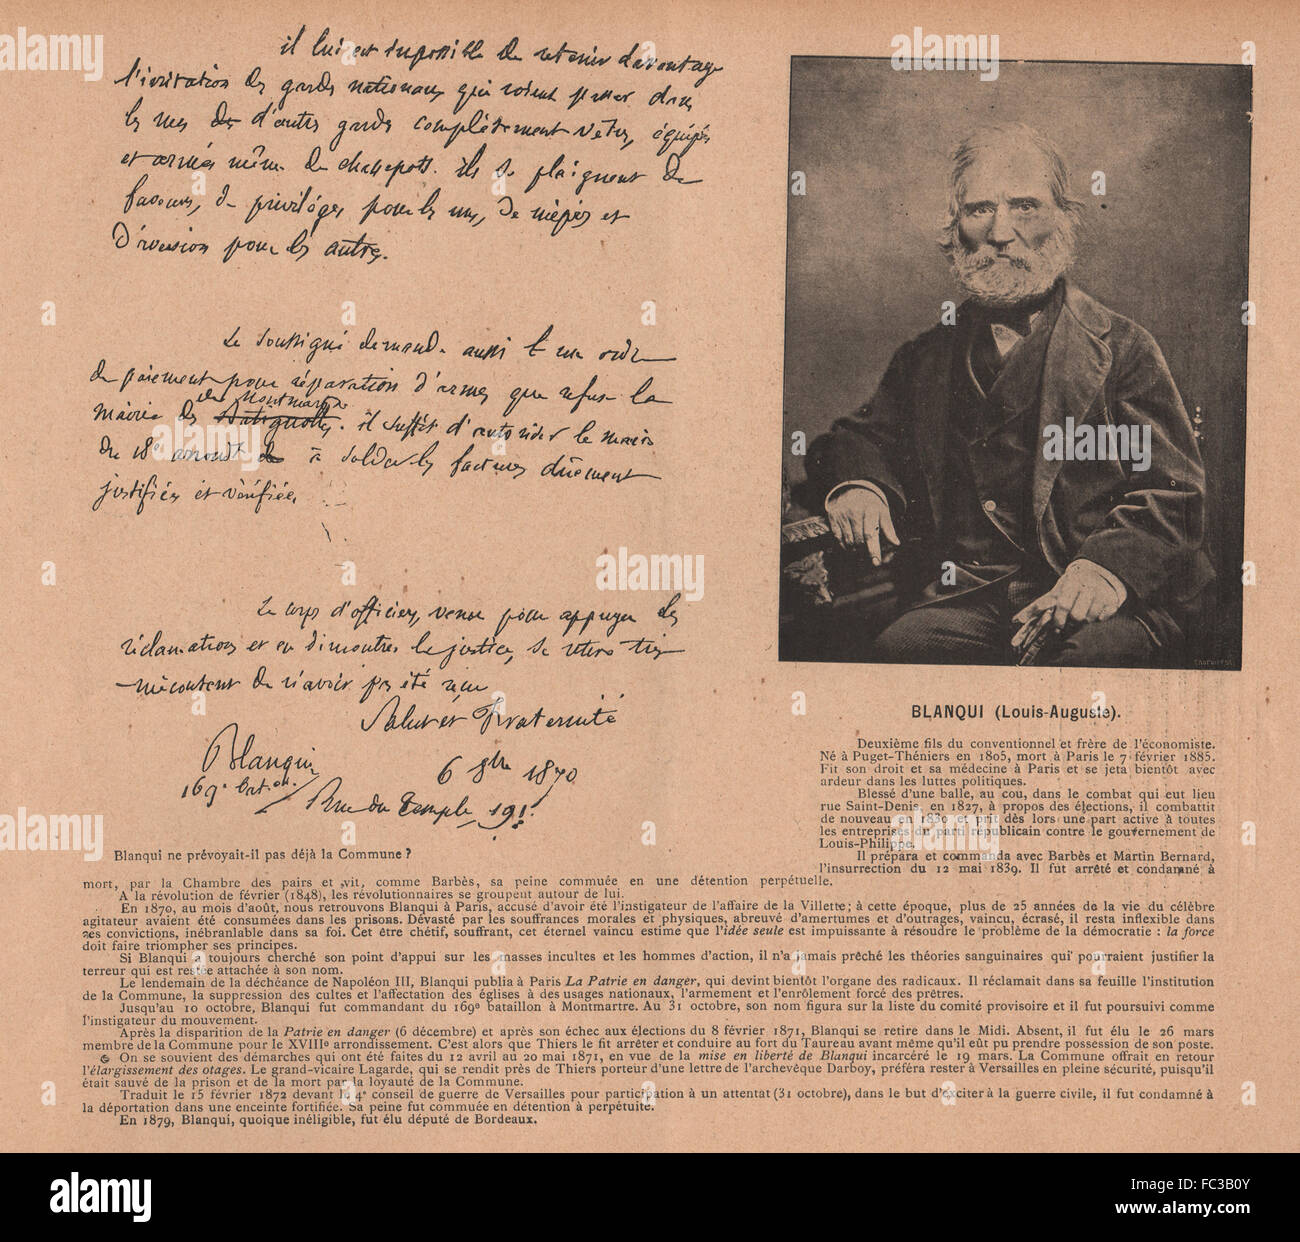 il lui est impossible de retenir davantage
l'irritation des gardes nationaux qui voient passer dans
les rues des d'autres gardes complètement vêtus, équipés
et armés même de chassepots. ils se plaignent de
faveurs, de privilèges pour les uns, de mépris et
d'aversion pour les autres.
Le soussigné demande aussi un ordre
de paiement pour réparation d'armes que refuse la
de Montmartre
mairie des Batignolles. il suffit d'autoriser le maire
du 18e arrondt à solder les factures dûement
justifiées et vérifiées
Le corps d'officiers, venu pour appuyer les
réclamations et en démontrer la justice, se retire très
mécontent de n'avoir pas été reçu
Salut et Fraternité
Blanqui
6 9bre 1870
169e bat.on.
Rue du Temple, 191.
Blanqui ne prévoyait-il pas déjà la Commune ?
BLANQUI (Louis-Auguste).
Deuxième fils du conventionnel et frère de l'économiste.
Né à Puget-Théniers en 1805, mort à Paris le 7 février 1885.
Fit son droit et sa médecine à Paris et se jeta bientôt avec
ardeur dans les luttes politiques.
Blessé d'une balle, au cou, dans le combat qui eut lieu
rue Saint-Denis en 1827, à propos des élections, il combattit
de nouveau en 1830 et prit dès lors une part active à toutes
les entreprises du parti républicain contre le gouvernement de
Louis-Philippe.
Il prépara et commanda avec Barbès et Martin Bernard,
l'insurrection du 12 mai 1839. Il fut arrêté et condamné à
mort, par la Chambre des pairs et vit, comme Barbès, sa peine commuée en une détention perpétuelle.
A la révolution de février (1848), les révolutionnaires se groupent autour de lui.
En 1870, au mois d'août, nous retrouvons Blanqui à Paris, accusé d'avoir été l'instigateur de l'affaire de la Villette ; à cette époque, plus de 25 années de la vie du célèbre
agitateur avaient été consumées dans les prisons. Dévasté par les souffrances morales et physiques, abreuvé d'amertumes et d'outrages, vaincu, écrasé, il resta inflexible dans
ses convictions, inébranlable dans sa foi. Cet être chétif, souffrant, cet éternel vaincu estime que l'idée seule est impuissante à résoudre le problème de la démocratie : la force
doit faire triompher ses principes.
Si Blanqui a toujours cherché son point d'appui sur les masses incultes et les hommes d'action, il n'a jamais prêché les théories sanguinaires qui pourraient justifier la
terreur qui est restée attachée à son nom.
Le lendemain de la déchéance de Napoléon III, Blanqui publia à Paris La Patrie en danger, qui devint bientôt l'organe des radicaux. Il réclamait dans sa feuille l'institution
de la Commune, la suppression des cultes et l'affectation des églises à des usages nationaux, l'armement et l'enrôlement forcé des prêtres.
Jusqu'au 10 octobre, Blanqui fut commandant du 169e bataillon à Montmartre. Au 31 octobre, son nom figura sur la liste du comité provisoire et il fut poursuivi comme
l'instigateur du mouvement.
Après la disparition de la Patrie en danger (6 décembre) et après son échec aux élections du 8 février 1871, Blanqui se retire dans le Midi. Absent, il fut élu le 26 mars
membre de la Commune pour le XVIIIe arrondissement. C'est alors que Thiers le fit arrêter et conduire au fort du Taureau avant même qu'il eût pu prendre possession de son poste.
On se souvient des démarches qui ont été faites du 12 avril au 20 mai 1871, en vue de la mise en liberté de Blanqui incarcéré le 19 mars. La Commune offrait en retour
l'élargissement des otages. Le grand-vicaire Lagarde, qui se rendit près de Thiers porteur d'une lettre de l'archevêque Darboy, préféra rester à Versailles en pleine sécurité, puisqu'il
était sauvé de la prison et de la mort par la loyauté de la Commune.
Traduit le 15 février 1872 devant le 4e conseil de guerre de Versailles pour participation à un attentat (31 octobre), dans le but d'exciter à la guerre civile, il fut condamné à
la déportation dans une enceinte fortifiée. Sa peine fut commuée en détention à perpétuité.
En 1879, Blanqui, quoique inéligible, fut élu député de Bordeaux.
alamy
Image ID: FC3B0Y
www.alamy.com